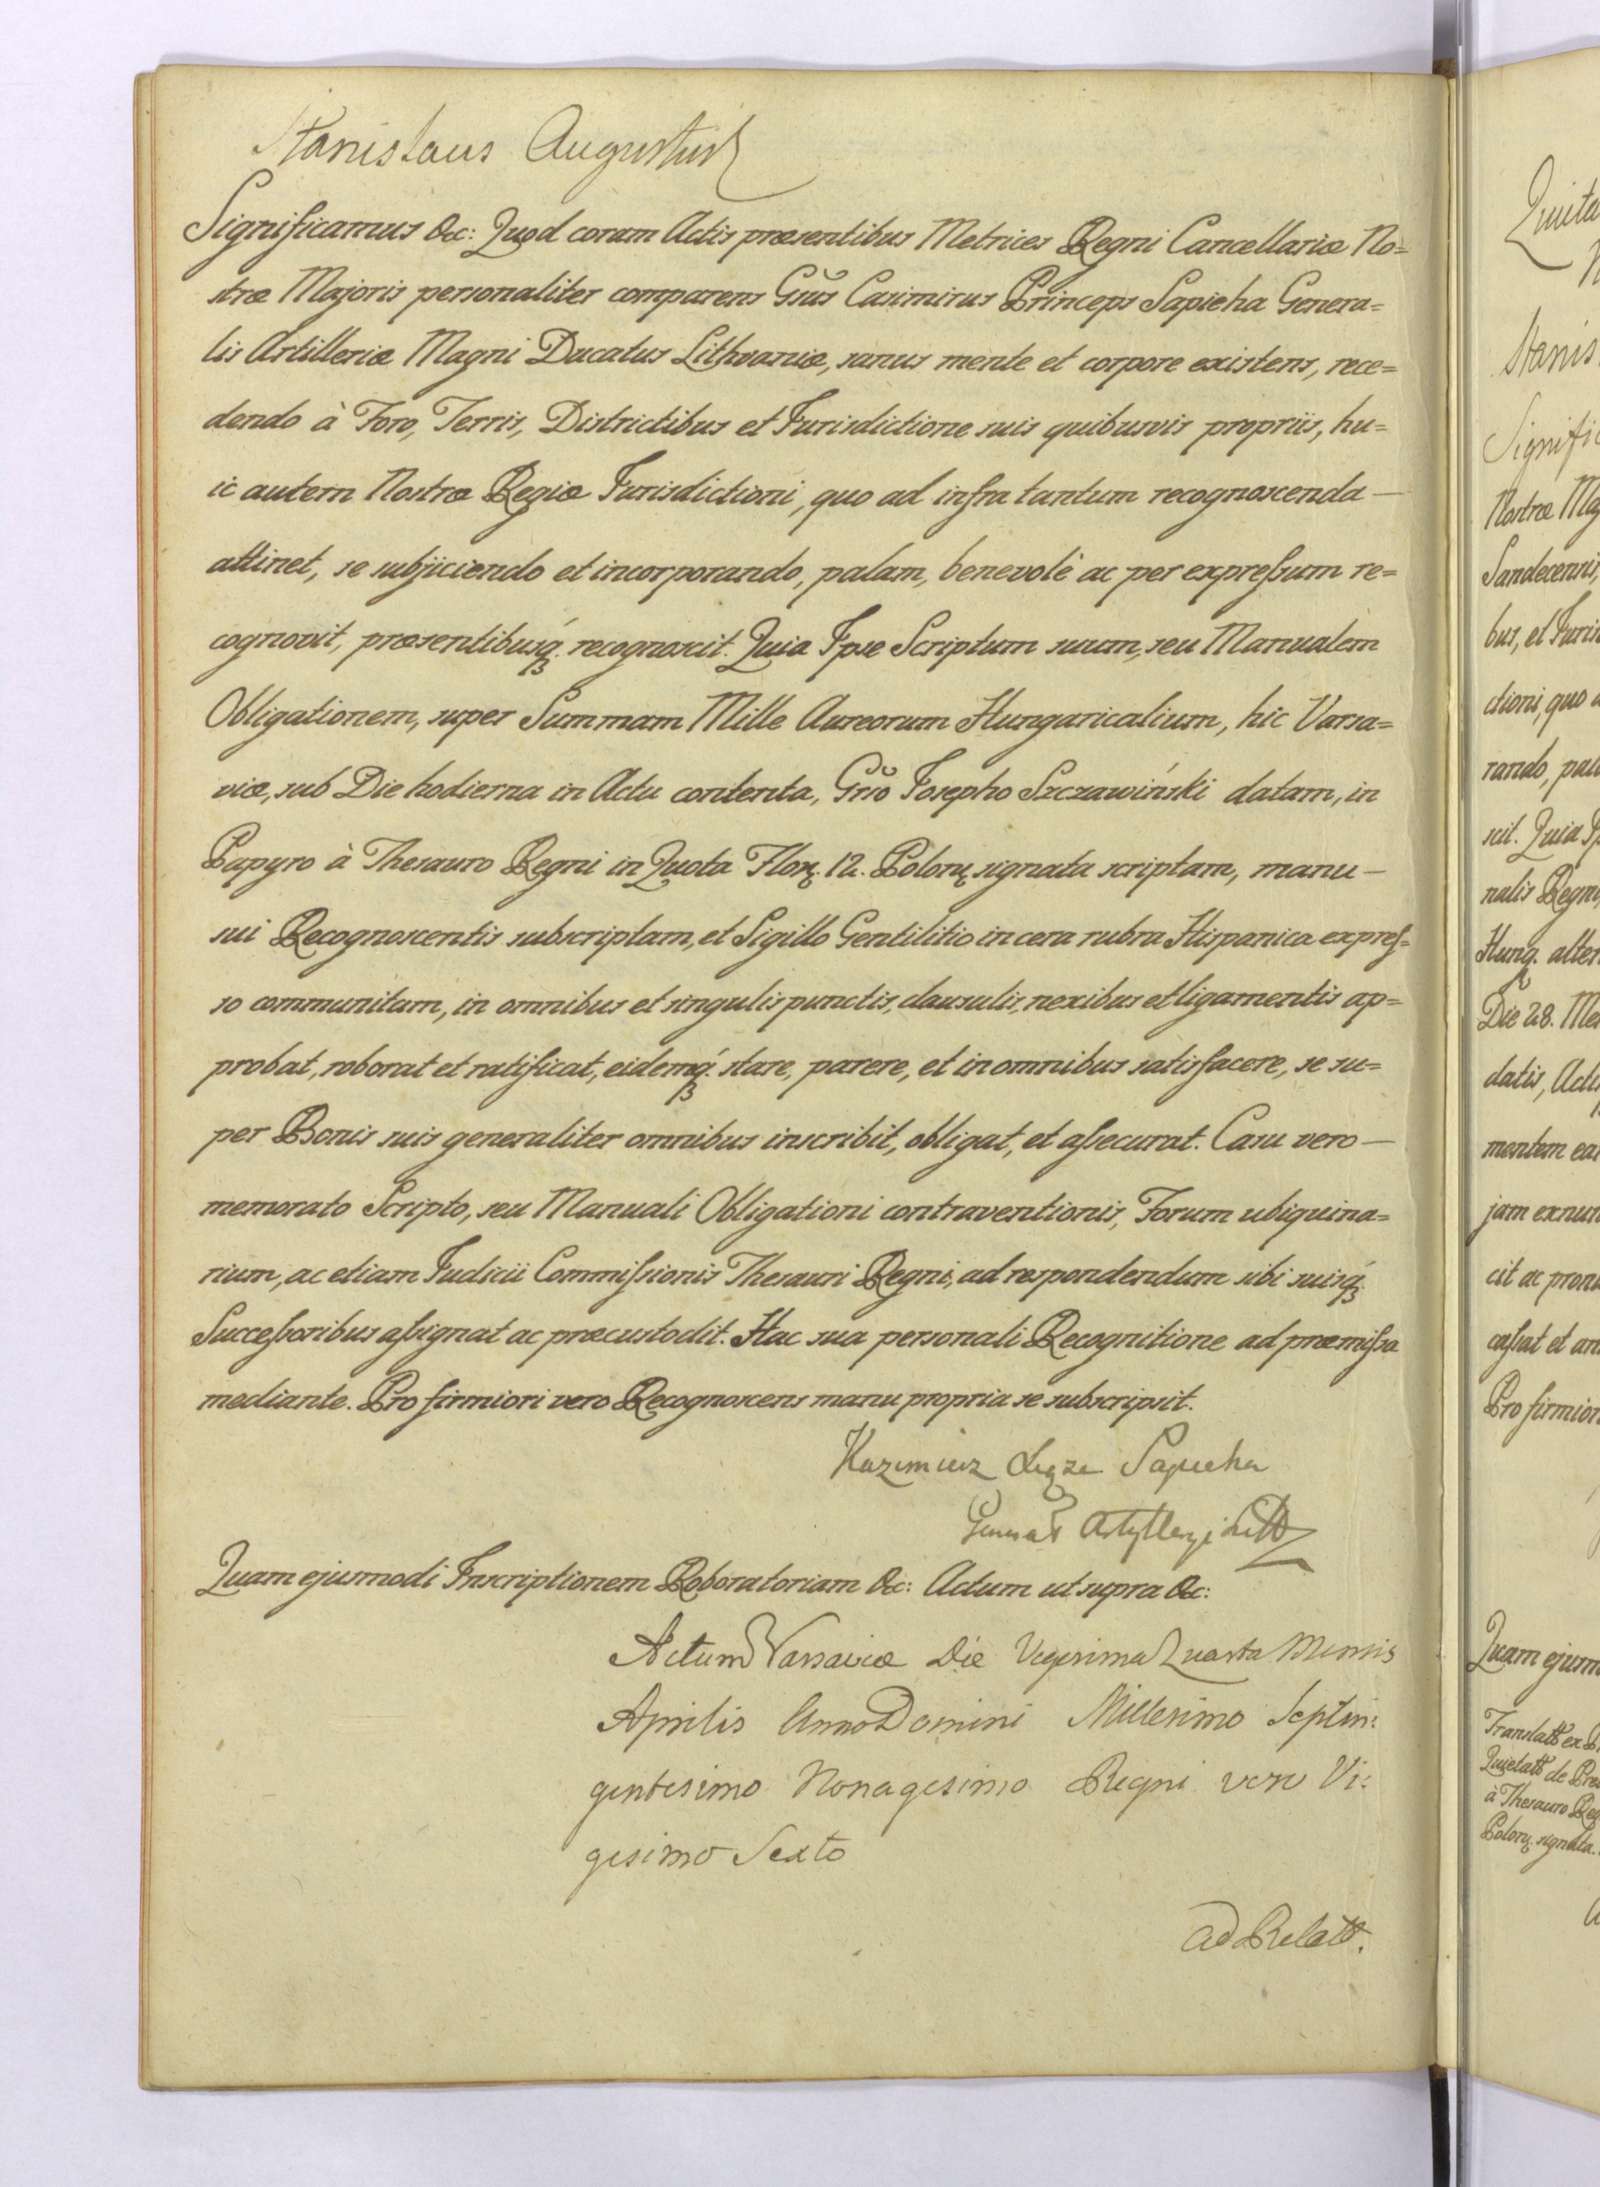 Stanislaus Augustus
Significamus &c: Quod coram Actis præsentibus Metrices Regni Cancellariæ No=
stræ Majoris personaliter comparens Gsŭs Casimirus Princeps Sapieha Genera=
lis Artilleriæ Magni Ducatus Lithvaniæ, sanus mente et corpore existens, rece=
dendo à Foro, Terris, Districtibus et Jurisdictione suis quibusvis propriis, hu=
ic autem Nostræ Regiæ Jurisdictioni, quo ad infra tantum recognoscenda —
attinet, se subjiciendo et incorporando, palam, benevolè ac per expreſsum re=
cognovit, præsentibusq́ꝫ recognoscit. Quia Ipse Scriptum suum, seu Manualem
Obligationem, super Summam Mille Aureorum Hungaricalium, hic Varsa=
viæ, sub Die hodierna in Actu contenta, Gsŏ Josepho Szczawiński datam, in
Papyro à Thesauro Regni in Quota Florꝫ. 12. Polonꝫ signata scriptam, manu —
sui Recognoscentis subscriptam, et Sigillo Gentilitio in cera rubra Hispanica expreſ=
so communitam, in omnibus et singulis punctis, clausulis, nexibus et ligamentis ap=
probat, roborat et ratificat, eidemq́ꝫ stare, parere, et in omnibus satisfacere, se su=
per Bonis suis generaliter omnibus inscribit, obligat, et aſsecurat. Casu vero —
memorato Scripto, seu Manuali Obligationi contraventionis, Forum ubiquina=
rium, ac etiam Judicii Commiſsionis Thesauri Regni, ad respondendum sibi suisq́ꝫ
Succeſsoribus aſsignat ac præcustodit. Hac sua personali Recognitione ad præmiſsa
mediante. Pro firmiori vero Recognoscens manu propria se subscripsit.
Kazimierz Xiąże Sapieha
Generał Artylleryi Litt
Quam ejusmodi Inscriptionem Roboratoriam &c: Actum ut supra &c:
Actum Varsaviæ Die Vigesima Quarta Mensis
Aprilis Anno Domini Millesimo Septin:
gentesimo Nonagesimo Regni vero Vi:
gesimo Sexto
Ad Relatt.
Quita
Stanis
Signific
Nostræ Maj
Sandecensis,
bus, et Juris
ctioni, quo a
rando, pala
scit. Quia Ip
nalis Regni,
Hung. alter
Die 28. Me
datis, Actu
mentem ear
jam exnun
cit ac pronu
caſsat et an
Pro firmior
Quam ejusm
Translatt ex P
Quietatt de Pre
à Thesauro Reg
Polonꝫ. signata.